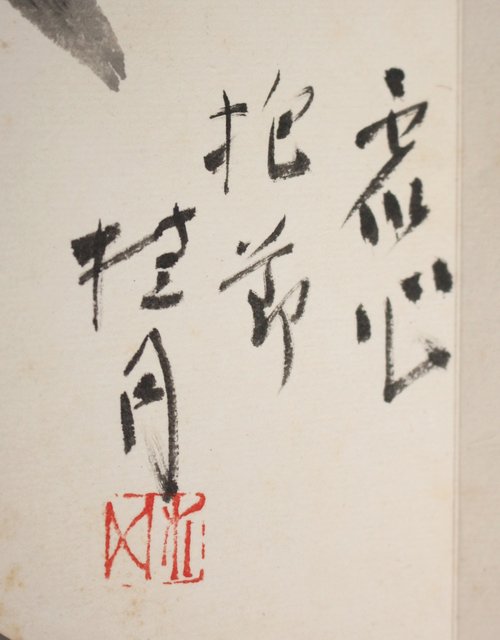 虚心
抱節
桂月